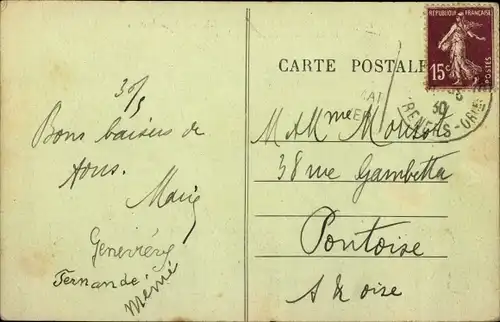 30/5
Bons baisers de
tous.
Marie
Geneviève
Fernande
Mémé
CARTE POSTALE
REPUBLIQUE FRANÇAISE
15c
POSTES
30
M et Mme
38 rue Gambetta
Pontoise
S & Oise